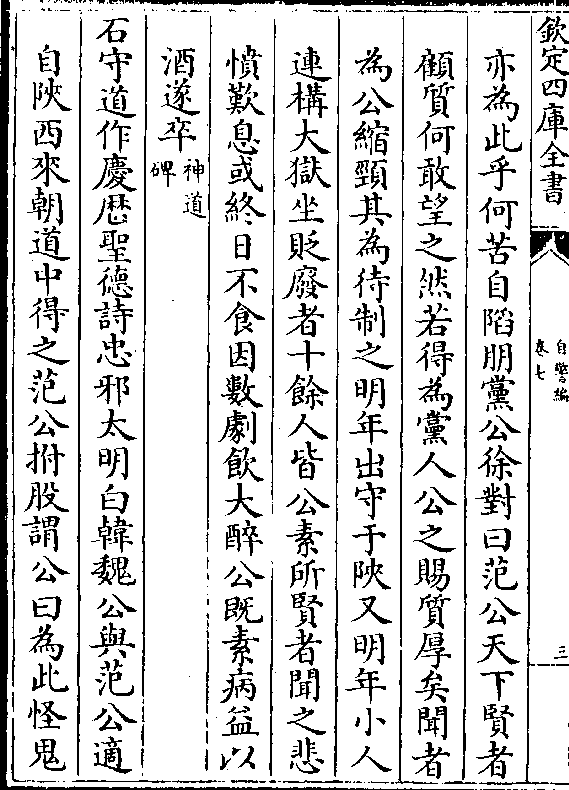 欽定四庫全書
自警編
卷七
三
亦為此乎何苦自陷朋黨公徐對曰范公天下賢者
顧質何敢望之然若得為黨人公之賜質厚矣聞者
為公縮頸其為待制之明年出守于陜又明年小人
連構大獄坐貶廢者十餘人皆公素所賢者聞之悲
憤歎息或終日不食因數劇飲大醉公既素病益以
酒遂卒神道
碑
石守道作慶厯聖德詩忠邪太明白韓魏公與范公適
自陜西來朝道中得之范公拊股謂公曰為此怪鬼